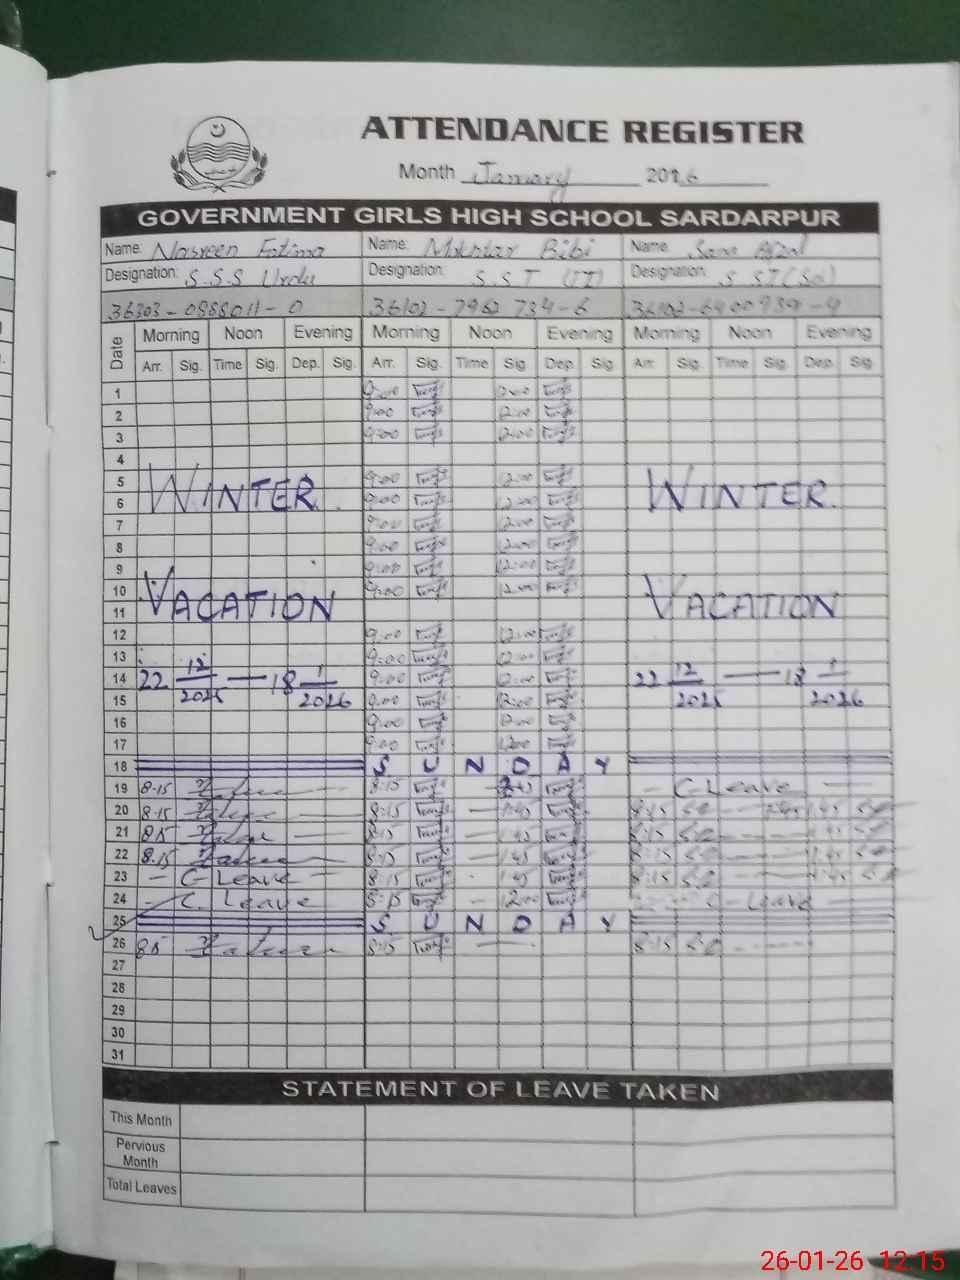 ATTENDANCE REGISTER
Month January 2026
GOVERNMENT GIRLS HIGH SCHOOL SARDARPUR
Name: Nasreen Fatima Name: Mukhtar Bibi Name: Sana Afzal
Designation: S.S.S Urdu Designation: S.S.T (IT) Designation: S.ST(Sci)
36303-0988011-0 36102-7962734-6
Date Morning Noon Evening Morning Noon Evening Morning Noon Evening
Arr. Sig. Time Sig. Dep. Sig. Arr. Sig. Time Sig Dep. Sig Arr Sig. Time Sig. Dep. Sig.
1 9:00 12:00
2 9:00 12:00
3 9:00 12:00
4
5 WINTER 9:00 12:00 WINTER
6 9:00 12:00
7 9:00 12:00
8 9:00 12:00
9 9:00 12:00
10 VACATION 9:00 12:00 VACATION
11
12 9:00 12:00
13 9:00 12:00
14 22 12/2025 — 18 1/2026 9:00 12:00 22 12/2025 — 18 1/2026
15 9:00 12:00
16 9:00 12:00
17 9:00 12:00
18 SUNDAY
19 8-15 8:15 - C-Leave -
20 8-15 8:15 - 1:45 8:15 1:45
21 8:15 8:15 - 1:45 8:15 1:45
22 8.15 8:15 - 1:45 8:15 1:45
23 - C-Leave - 8:15 1:45 8:15 1:45
24 - C. Leave 8:15 - 12:00 C - Leave -
25 SUNDAY
26 8:15 8:15 8:15
27
28
29
30
31
STATEMENT OF LEAVE TAKEN
This Month
Pervious Month
Total Leaves
26-01-26 12:15